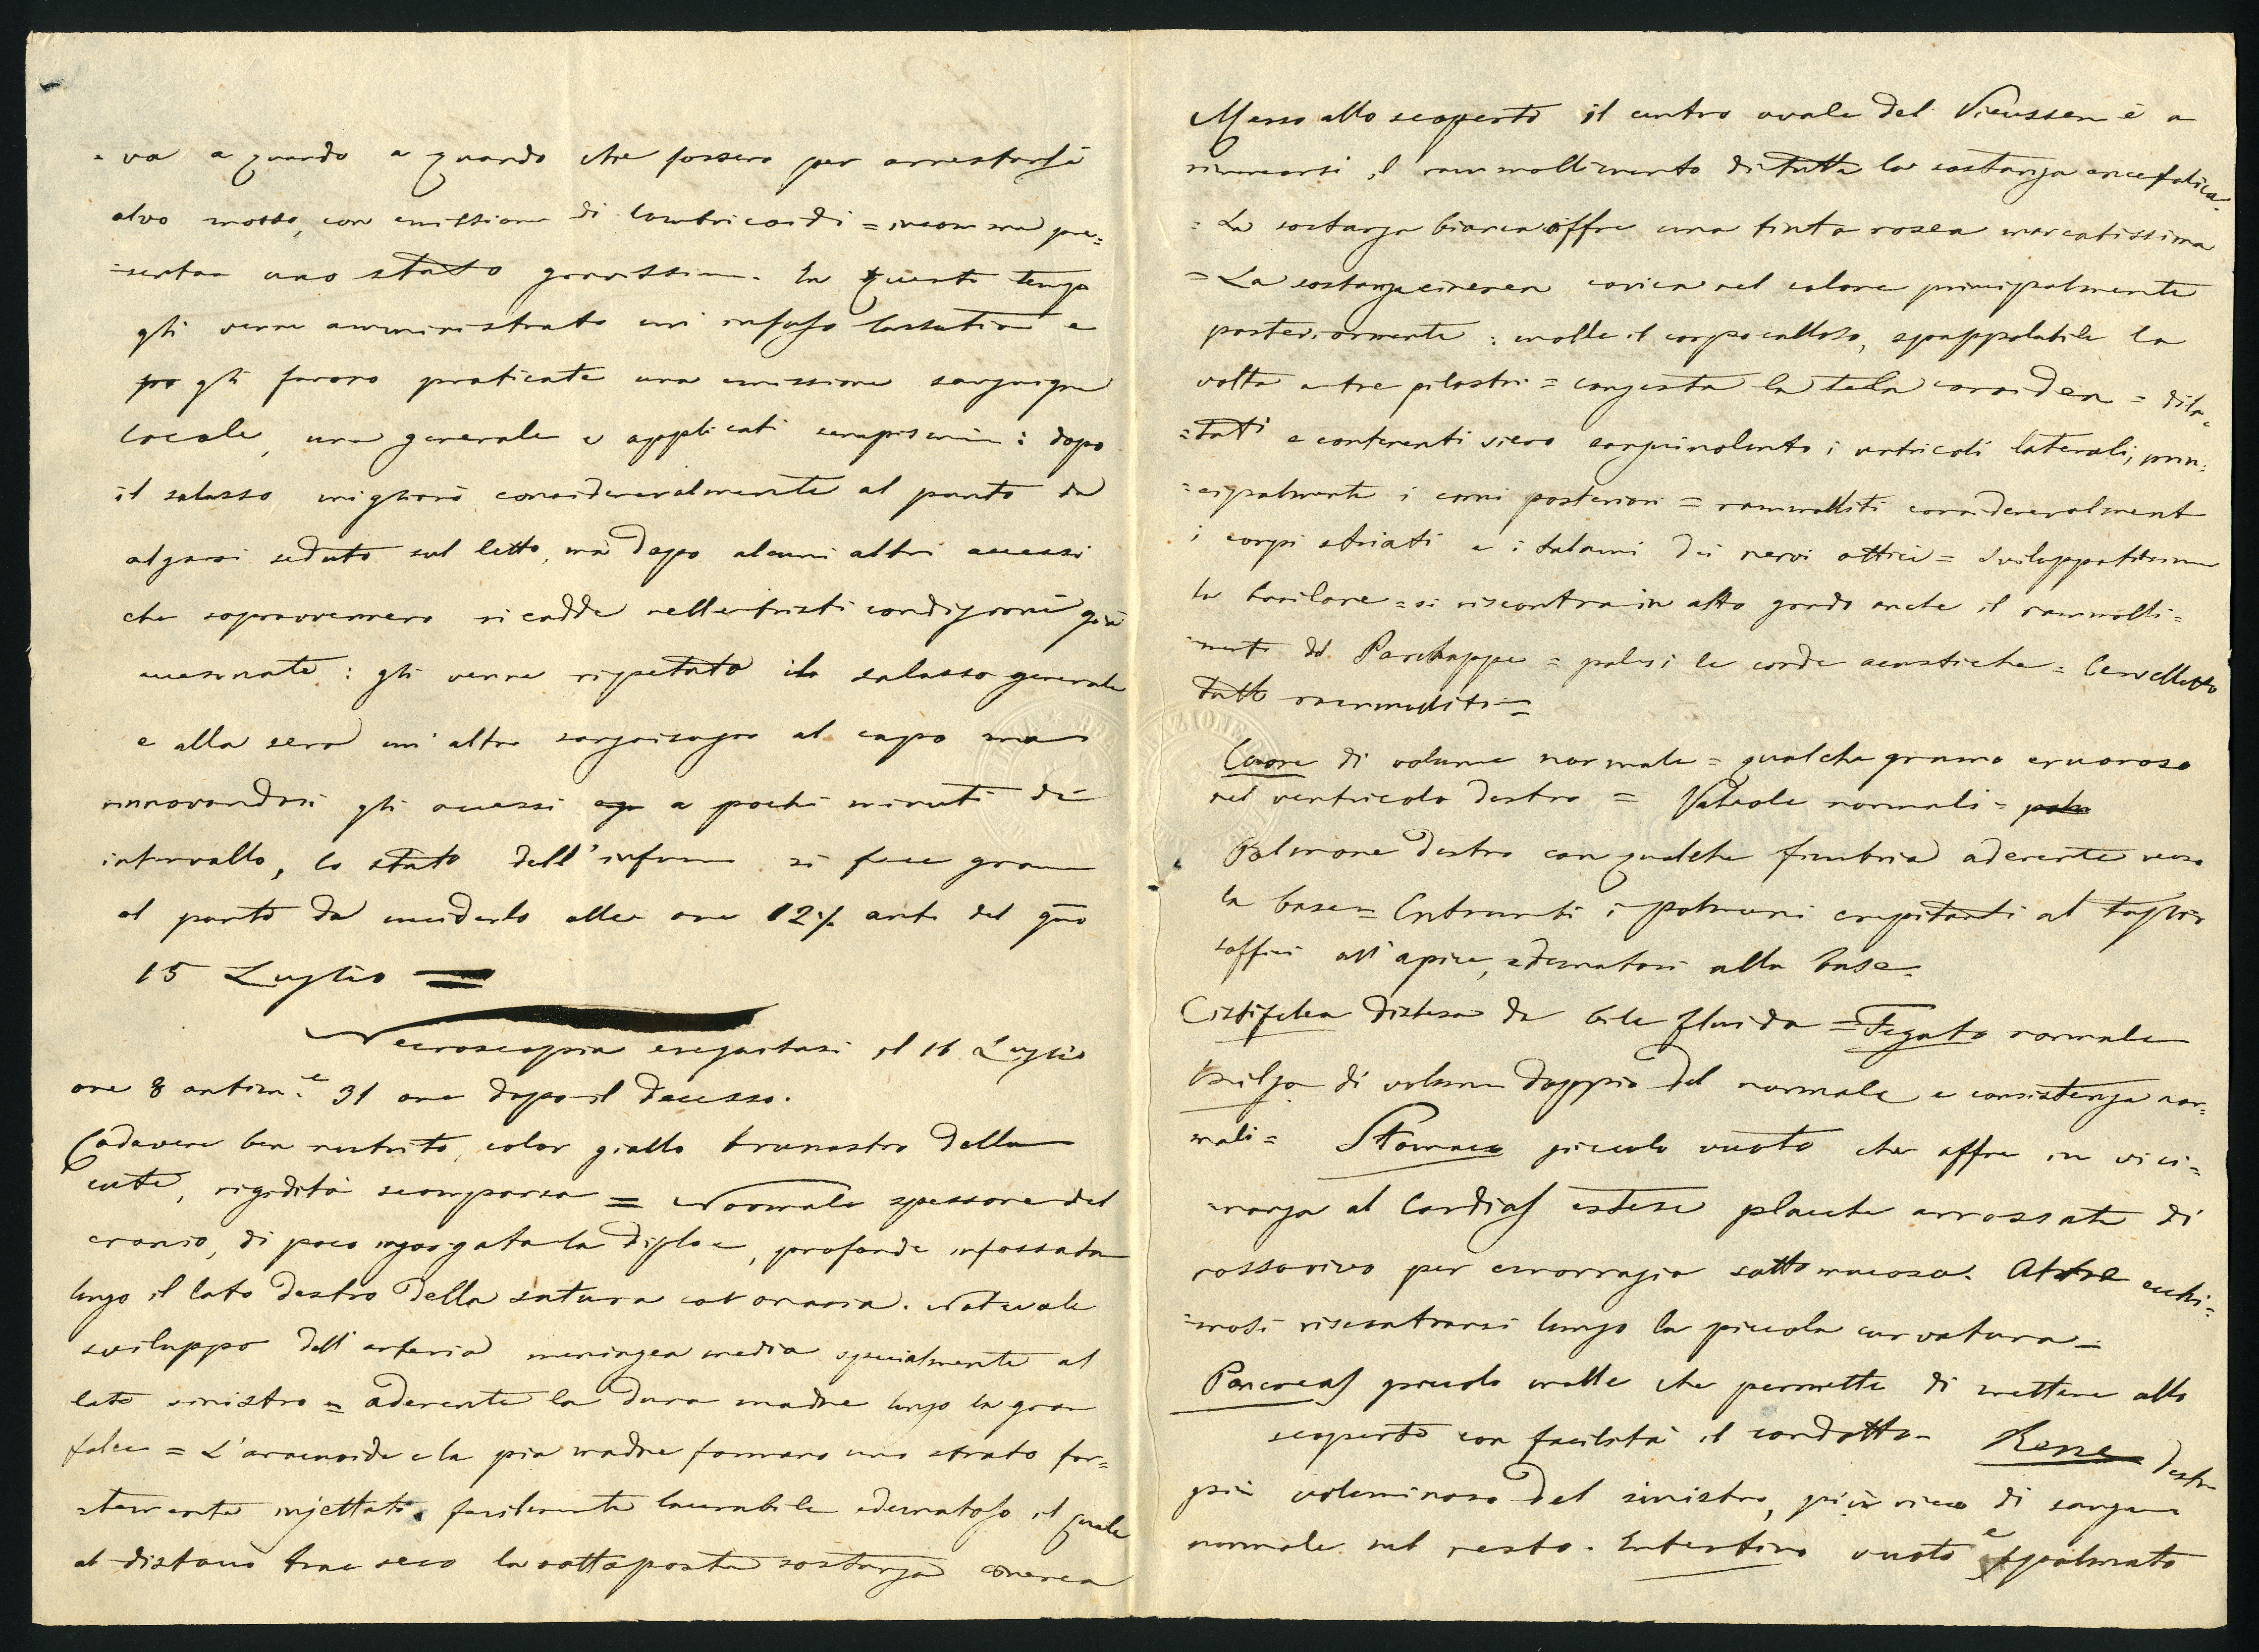 =va a quando a quando che fossero per arrestarsi
alvo mosso, con emissione di lombricoidi = insomma pre=
=sentava uno stato gravissimo. In questo tempo
gli venne amministrato un infuso lassativo e
po gli furono praticate una emissione sanguigna
locale, una generale e applicati senapismi: dopo
il salasso migliorò considerevolmente al punto da
alzarsi seduto sul letto, ma dopo alcuni altri accessi
che sopravvennero ricadde nelle tristi condizioni già
accennate: gli venne ripetuto il salasso generale
e alla sera un'altro sanguisugio al capo ma
rinnovandosi gli accessi a pochi minuti di
intervallo, lo stato dell'infermo si fece grave
al punto da ucciderlo alle ore 12½ ant. del gno
15 Luglio =
Necroscopia eseguitasi il 16 Luglio
ore 8 antim.e 31 ore dopo il decesso.
Cadavere ben nutrito, color giallo brunastro della
cute, rigidità scomparsa = Normale spessore del
cranio, di poco ingorgata la diploe, profonde infossature
lungo il lato destro della sutura coronaria. Notevole
sviluppo dell'arteria meningea media specialmente al
lato sinistro = aderente la dura madre lungo la gran
falce = L'aracnoide e la pia madre formano uno strato for=
=temente injettato, facilmente lacerabile edematoso il quale
al distacco trae seco la sottoposta sostanza cinerea
Messo allo scoperto il centro ovale del Vieussen è a
rimarcarsi il rammollimento di tutta la sostanza encefalica.
= La sostanza bianca offre una tinta rosea marcatissima
= La sostanza cinerea carica nel colore principalmente
posteriormente: molle il corpo calloso, spappolabile la
volta a tre pilastri = congesta la tela coroidea = dila=
=tati e contenenti siero sanguinolento i ventricoli laterali, prin=
=cipalmente i corni posteriori = rammolliti considerevolment
i corpi striati e i talami dei nervi ottici = sviluppatissima
la basilare = si riscontra in alto grado anche il rammolli=
=mento del Parchappe = palesi le corde acustiche = Cervelletto
tutto rammollito =
Cuore di volume normale = qualche grumo cruoroso
nel ventricolo destro = Valvole normali =
Polmone destro con qualche fimbria aderente verso
la base = Entrambi i polmoni crepitanti al taglio
soffici all'apice, edematosi alla base.
Cistifelea distesa da bile fluida = Fegato normale
Milza di volume doppio del normale e consistenza nor=
mali = Stomaco piccolo vuoto che offre in vici=
=nanza al Cardias estese placche arrossate di
rosso vivo per emorragia sottomucosa. Altre ecchi=
=mosi riscontransi lungo la piccola curvatura =
Pancreas piccolo molle che permette di mettere allo
scoperto con facilità il condotto = Rene destro
più voluminoso del sinistro, più ricco di sangue
normale nel resto. Intestino vuoto e spalmato